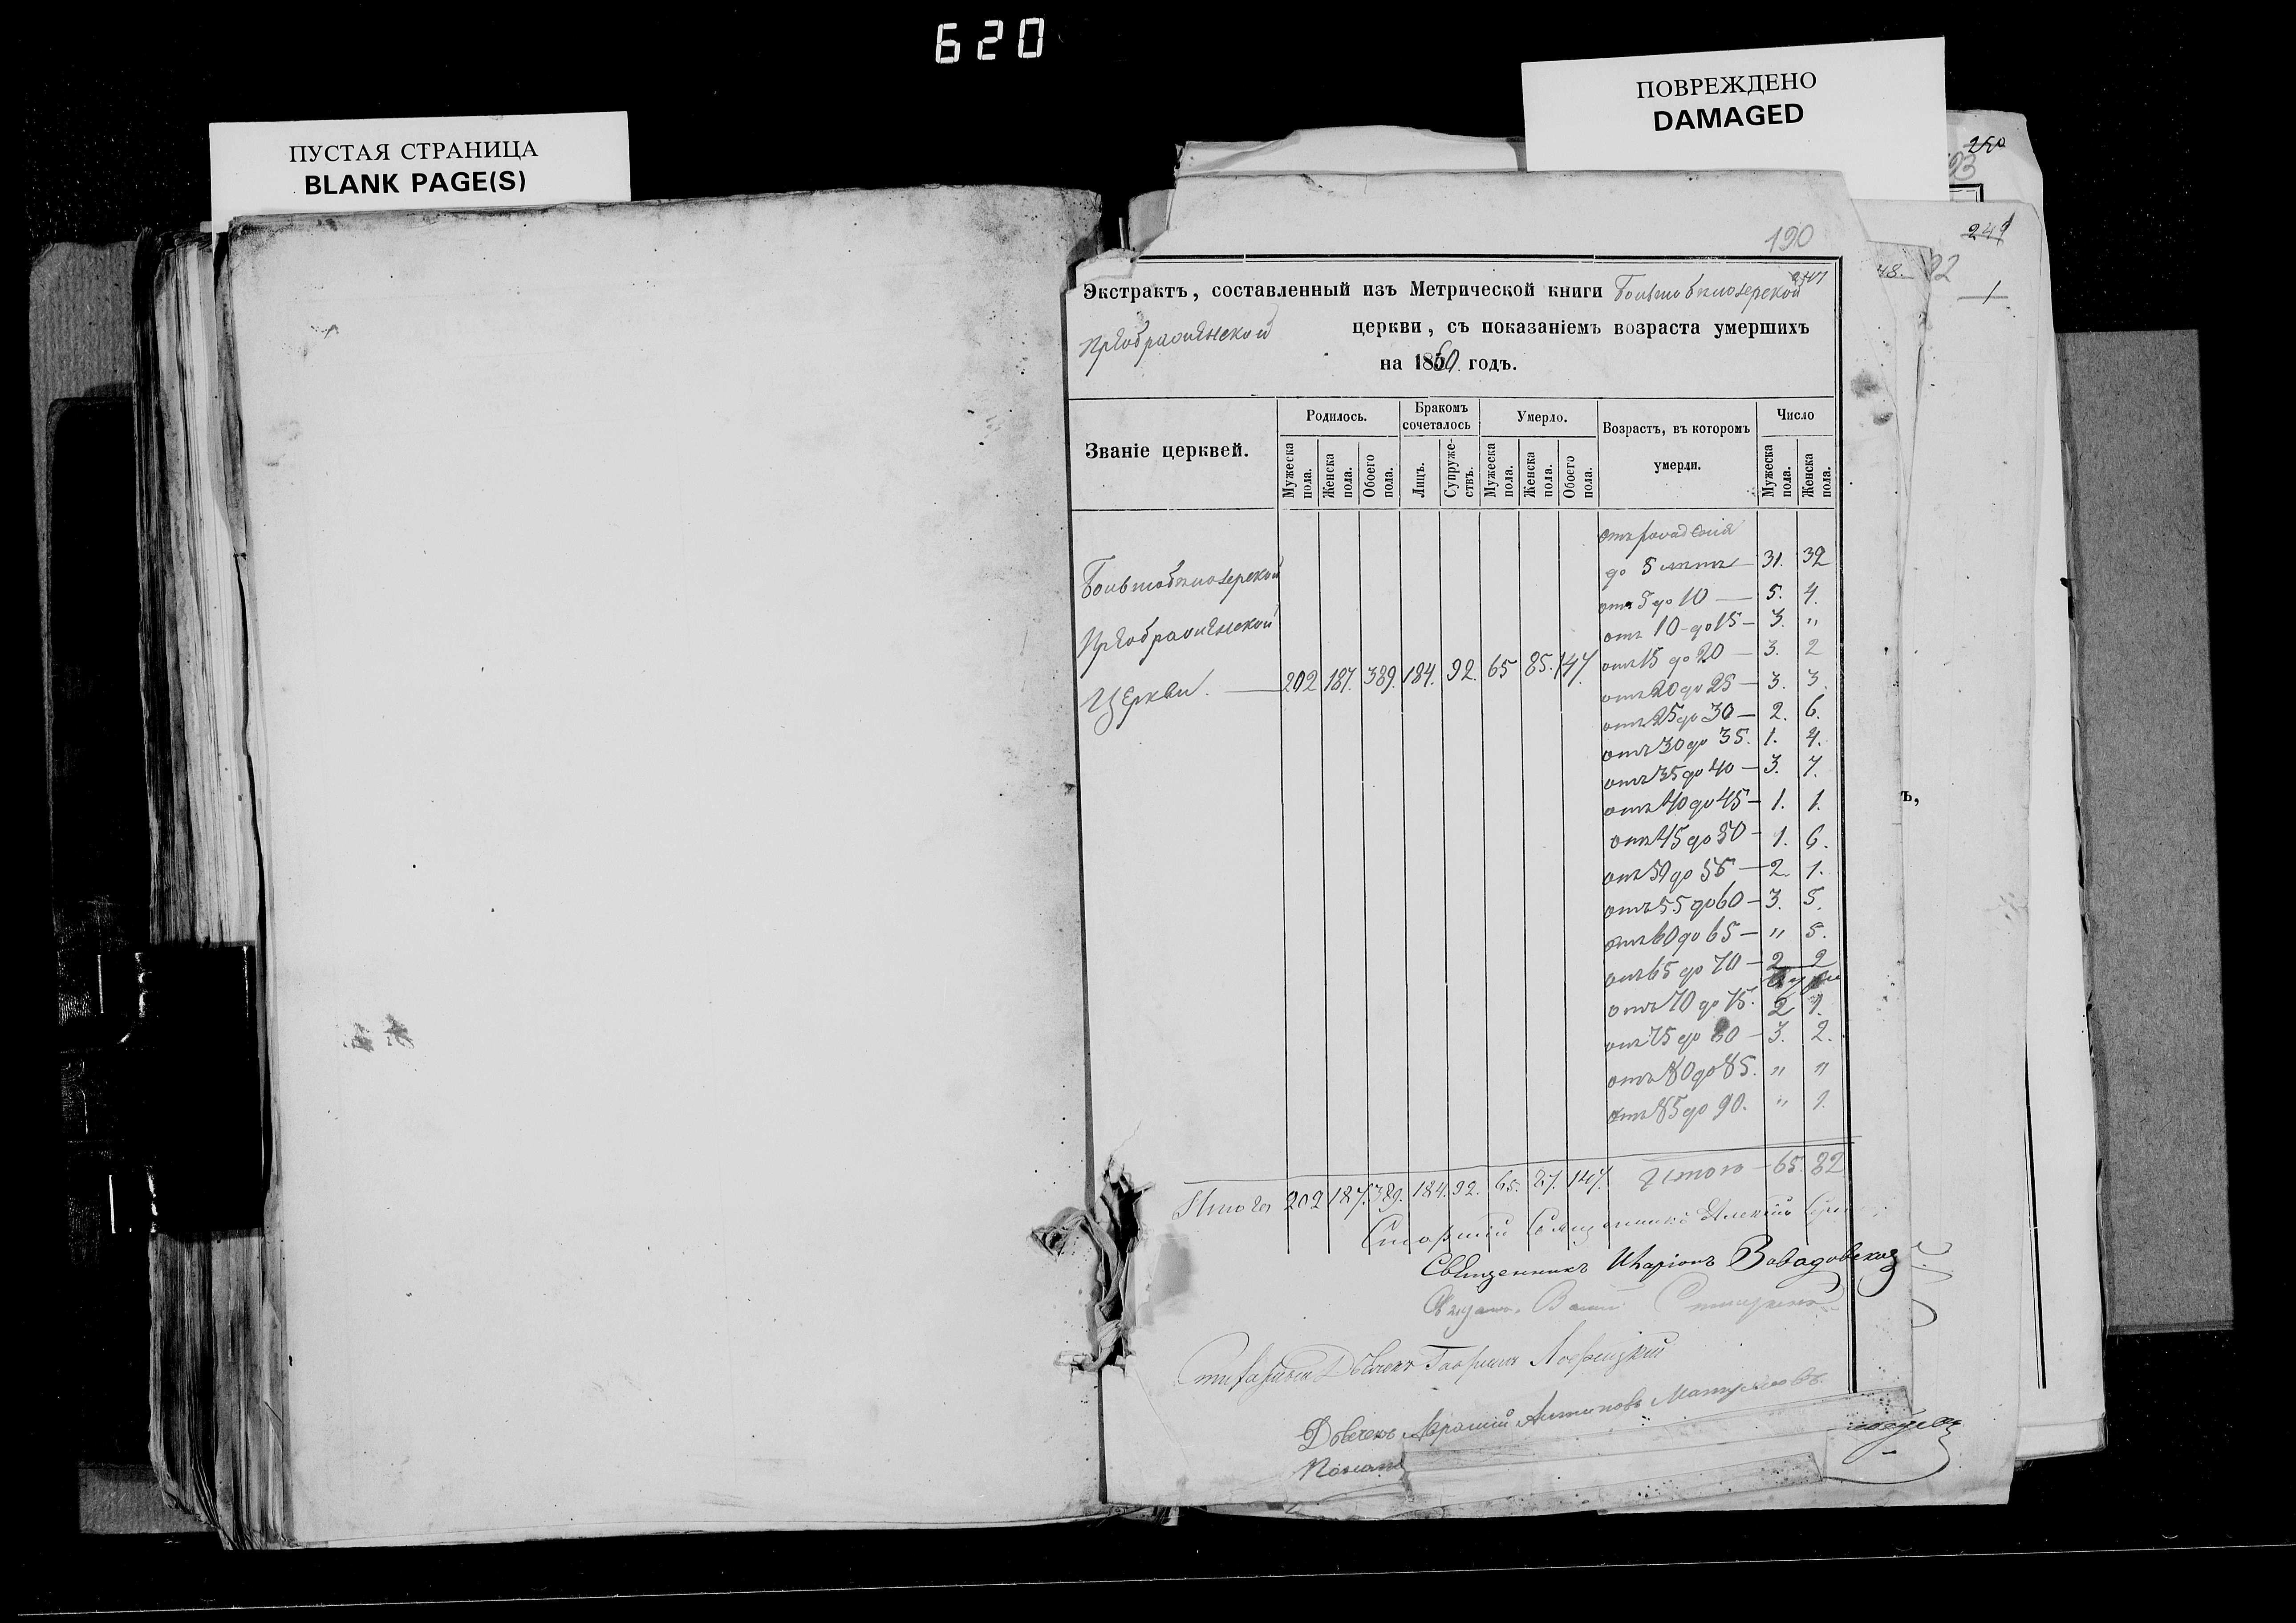 620
ПУСТАЯ СТРАНИЦА
BLANK PAGE(S)
ПОВРЕЖДЕНО
DAMAGED
250
93
249
190
247
48.
92
1
Экстрактъ, составленный изъ Метрической книги
Преображенской церкви, съ показаніемъ возраста умершихъ
на 1860. годъ.
Званіе церквей.
Родилось.
Бракомъ сочеталось
Умерло.
Возрастъ, въ которомъ умерли.
Число
Мужеска пола.
Женска пола.
Обоего пола.
Лицъ.
Супружествъ.
Мужеска пола.
Женска пола.
Обоего пола.
Мужеска пола.
Женска пола.
отъ рожденія
до 5 лѣтъ — 31. 32
отъ 5 до 10 — 5. 4.
Преображенской
отъ 10 до 15 — 3. "
отъ 15 до 20 — 3. 2
Церкви. — 202 187. 389. 184. 92. 65 85. 147.
отъ 20 до 25 — 3. 3.
отъ 25 до 30 — 2. 6.
отъ 30 до 35. 1. 4.
отъ 35 до 40 — 3. 7.
отъ 40 до 45 — 1. 1.
ъ,
отъ 45 до 50 — 1. 6.
отъ 50 до 55 — 2. 1.
отъ 55 до 60 — 3. 5.
отъ 60 до 65 — " 5.
отъ 65 до 70 — 2 2
отъ 70 до 75. 2 1.
отъ 75 до 80 — 3. 2.
отъ 80 до 85. " "
отъ 85 до 90. " 1.
Итого — 65. 82
Итого 202 187. 389. 184. 92. 65. 87. 147.
Старшій Священникъ Алексій
Священникъ Иларіонъ Завадовскій
Дьячекъ Гавріилъ
Дьячекъ